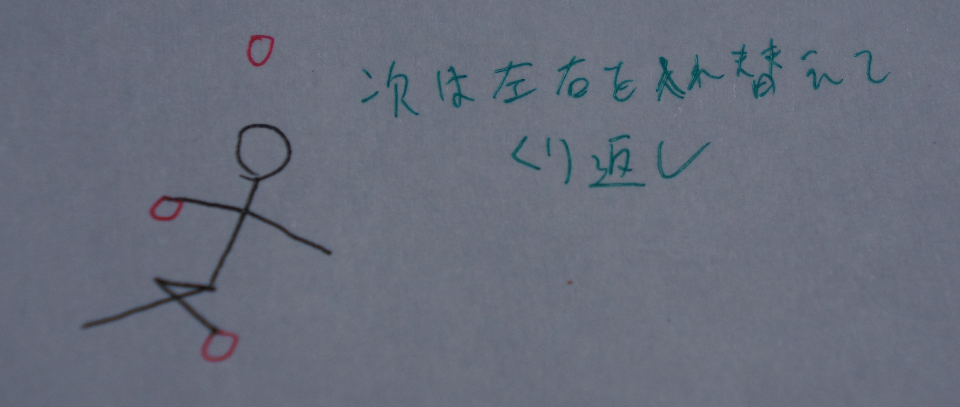 次は左右を入れ替えて
くり返し